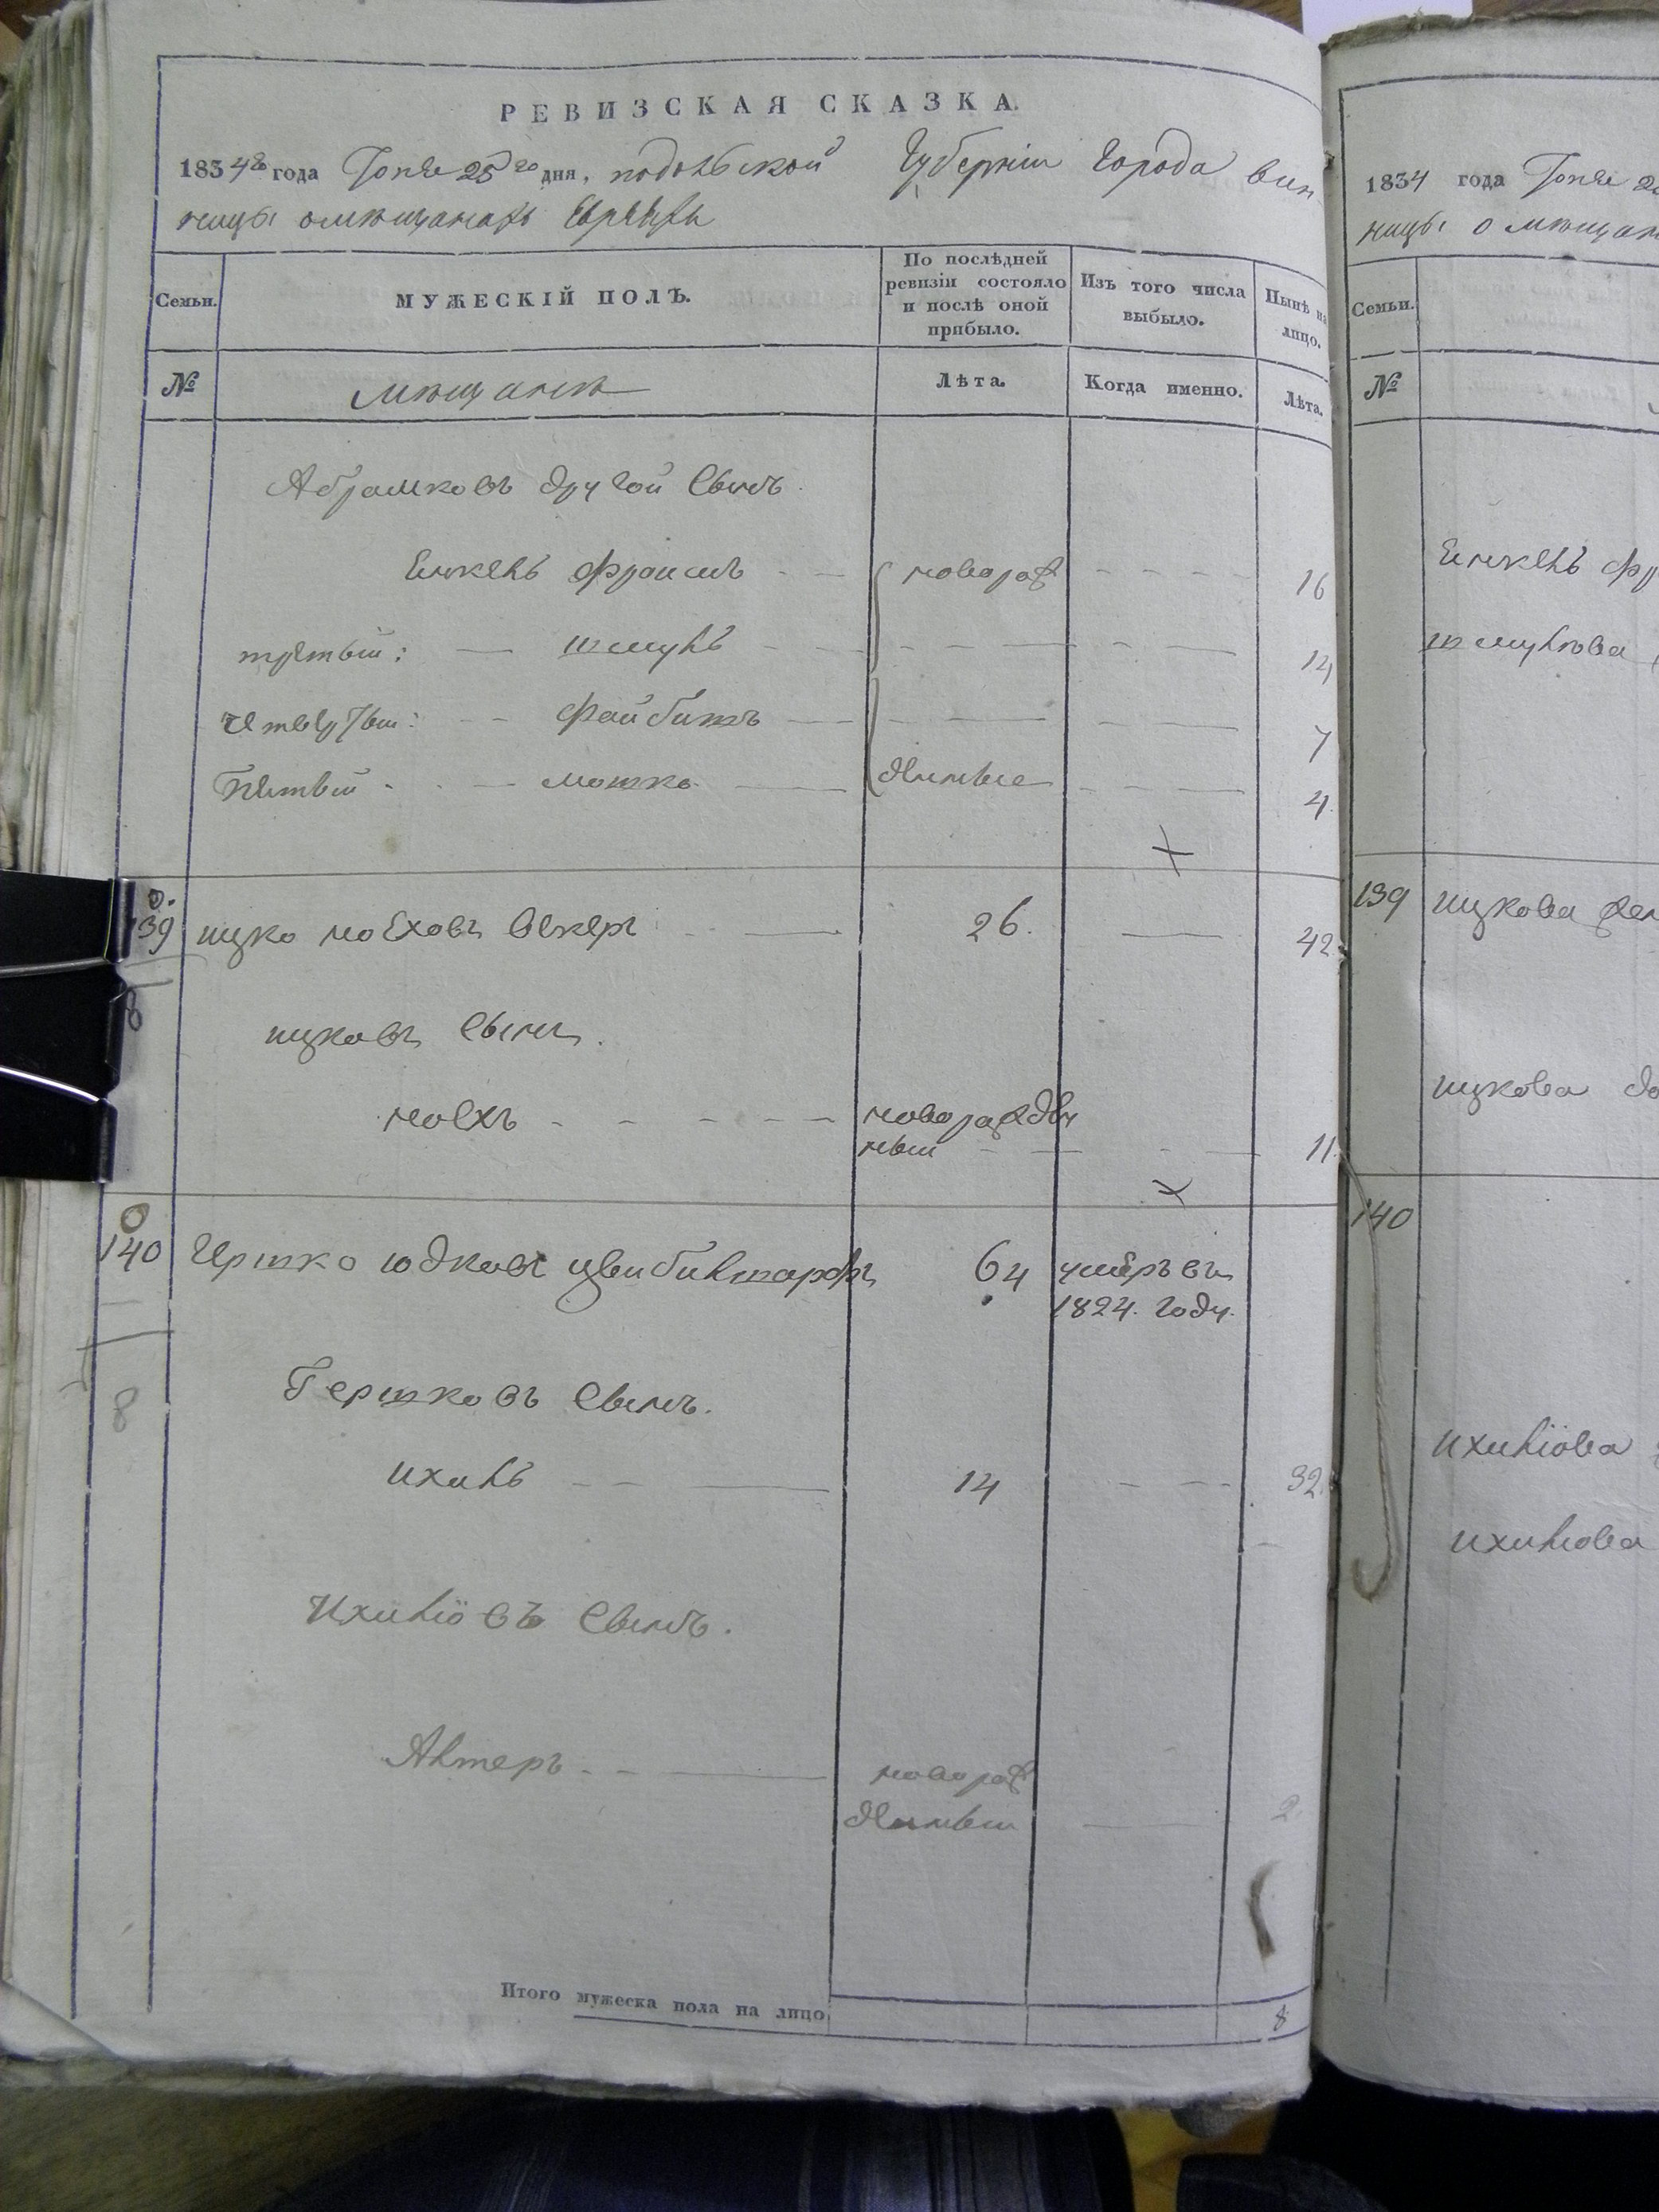 РЕВИЗСКАЯ СКАЗКА.
1834го года Юня 25го дня, подольской Губерніи Города вин
ницы о мѣщанахъ Евреяхъ
Семьи.
МУЖЕСКІЙ ПОЛЪ.
По послѣдней ревизіи состояло и послѣ оной прибыло.
Изъ того числа выбыло.
Нынѣ на лицо.
№
мѣщане
Лѣта.
Когда именно.
Лѣта.
Абрамковъ другой Сынъ.
фроимъ новорож 16
третый: шмуль 12
Четвертый: Файбишъ 7
Пятый мошко денные 4
139 ицко ноеховъ 26. 42
ицковъ Сынъ.
ноехъ новорожден
ный 11
140 Гершко юдковъ 64 умеръ въ
1824. году.
Гершковъ Сынъ.
ихиль 14 32
Ихиліовъ Сынъ.
Алтеръ новорож
денный 2
Итого мужеска пола на лицо 8
1834 года Юня
ницы о мѣщан
Семьи.
№
шмулева
139 ицкова
ицкова до
140
ихиліова
ихилова